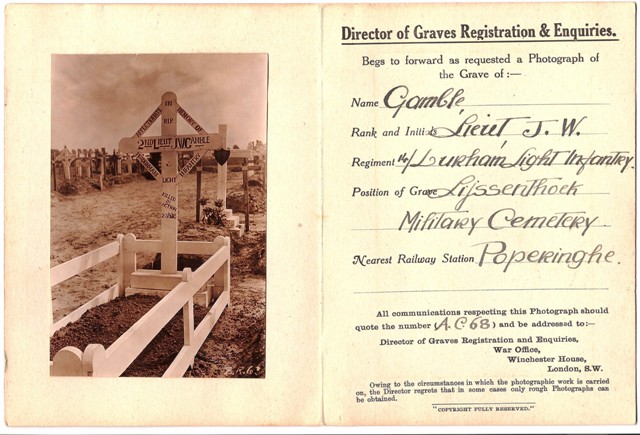 IN
AFFECTIONATE MEMORY OF
R.I.P.
2ND LIEUT J.W. GAMBLE
DURHAM
LIGHT
INFANTRY
KILLED
IN
ACTION
Director of Graves Registration & Enquiries.
Begs to forward as requested a Photograph of
the Grave of :—
Name Gamble,
Rank and Initials Lieut J. W.
Regiment 14/Durham Light Infantry.
Position of Grave Lijssenthoek
Military Cemetery
Nearest Railway Station Poperinghe.
All communications respecting this Photograph should
quote the number (A.C 68) and be addressed to:—
Director of Graves Registration and Enquiries,
War Office,
Winchester House,
London, S.W.
Owing to the circumstances in which the photographic work is carried
on, the Director regrets that in some cases only rough Photographs can
be obtained.
"COPYRIGHT FULLY RESERVED."